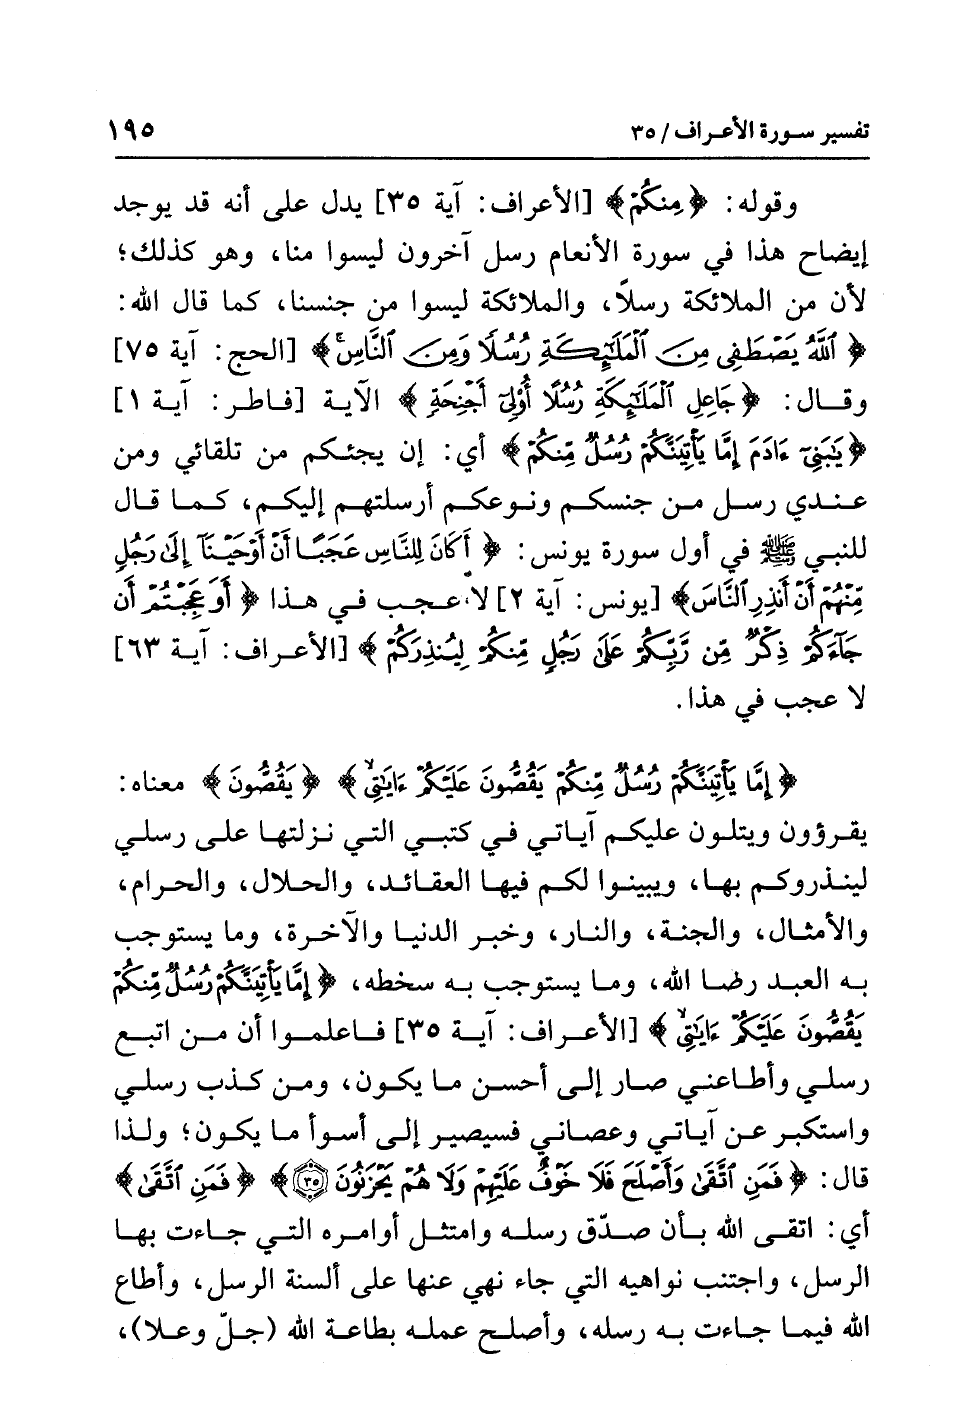 تفسير سورة الأعراف / ٣٥
١٩٥
وقوله: ﴿مِنكُمْ﴾ [الأعراف: آية ٣٥] يدل على أنه قد يوجد
إيضاح هذا في سورة الأنعام رسل آخرون ليسوا منا، وهو كذلك؛
لأن من الملائكة رسلاً، والملائكة ليسوا من جنسنا، كما قال الله:
﴿ٱللَّهُ يَصْطَفِى مِنَ ٱلْمَلَٰٓئِكَةِ رُسُلًا وَمِنَ ٱلنَّاسِۚ﴾ [الحج: آية ٧٥]
وقال: ﴿جَاعِلِ ٱلْمَلَٰٓئِكَةِ رُسُلًا أُو۟لِىٓ أَجْنِحَةٍ﴾ الآية [فاطر: آية ١]
﴿يَٰبَنِىٓ ءَادَمَ إِمَّا يَأْتِيَنَّكُمْ رُسُلٌ مِّنكُمْ﴾ أي: إن يجئكم من تلقائي ومن
عندي رسل من جنسكم ونوعكم أرسلتهم إليكم، كما قال
للنبي ﷺ في أول سورة يونس: ﴿أَكَانَ لِلنَّاسِ عَجَبًا أَنْ أَوْحَيْنَآ إِلَىٰ رَجُلٍ
مِّنْهُمْ أَنْ أَنذِرِ ٱلنَّاسَ﴾ [يونس: آية ٢] لا عجب في هذا ﴿أَوَعَجِبْتُمْ أَن
جَآءَكُمْ ذِكْرٌ مِّن رَّبِّكُمْ عَلَىٰ رَجُلٍ مِّنكُمْ لِيُنذِرَكُمْ﴾ [الأعراف: آية ٦٣]
لا عجب في هذا.
﴿إِمَّا يَأْتِيَنَّكُمْ رُسُلٌ مِّنكُمْ يَقُصُّونَ عَلَيْكُمْ ءَايَٰتِىۙ﴾ ﴿يَقُصُّونَ﴾ معناه:
يقرؤون ويتلون عليكم آياتي في كتبي التي نزلتها على رسلي
لينذروكم بها، ويبينوا لكم فيها العقائد، والحلال، والحرام،
والأمثال، والجنة، والنار، وخبر الدنيا والآخرة، وما يستوجب
به العبد رضا الله، وما يستوجب به سخطه، ﴿إِمَّا يَأْتِيَنَّكُمْ رُسُلٌ مِّنكُمْ
يَقُصُّونَ عَلَيْكُمْ ءَايَٰتِىۙ﴾ [الأعراف: آية ٣٥] فاعلموا أن من اتبع
رسلي وأطاعني صار إلى أحسن ما يكون، ومن كذب رسلي
واستكبر عن آياتي وعصاني فسيصير إلى أسوأ ما يكون؛ ولذا
قال: ﴿فَمَنِ ٱتَّقَىٰ وَأَصْلَحَ فَلَا خَوْفٌ عَلَيْهِمْ وَلَا هُمْ يَحْزَنُونَ ٣٥﴾ ﴿فَمَنِ ٱتَّقَىٰ﴾
أي: اتقى الله بأن صدّق رسله وامتثل أوامره التي جاءت بها
الرسل، واجتنب نواهيه التي جاء نهي عنها على ألسنة الرسل، وأطاع
الله فيما جاءت به رسله، وأصلح عمله بطاعة الله (جلّ وعلا)،